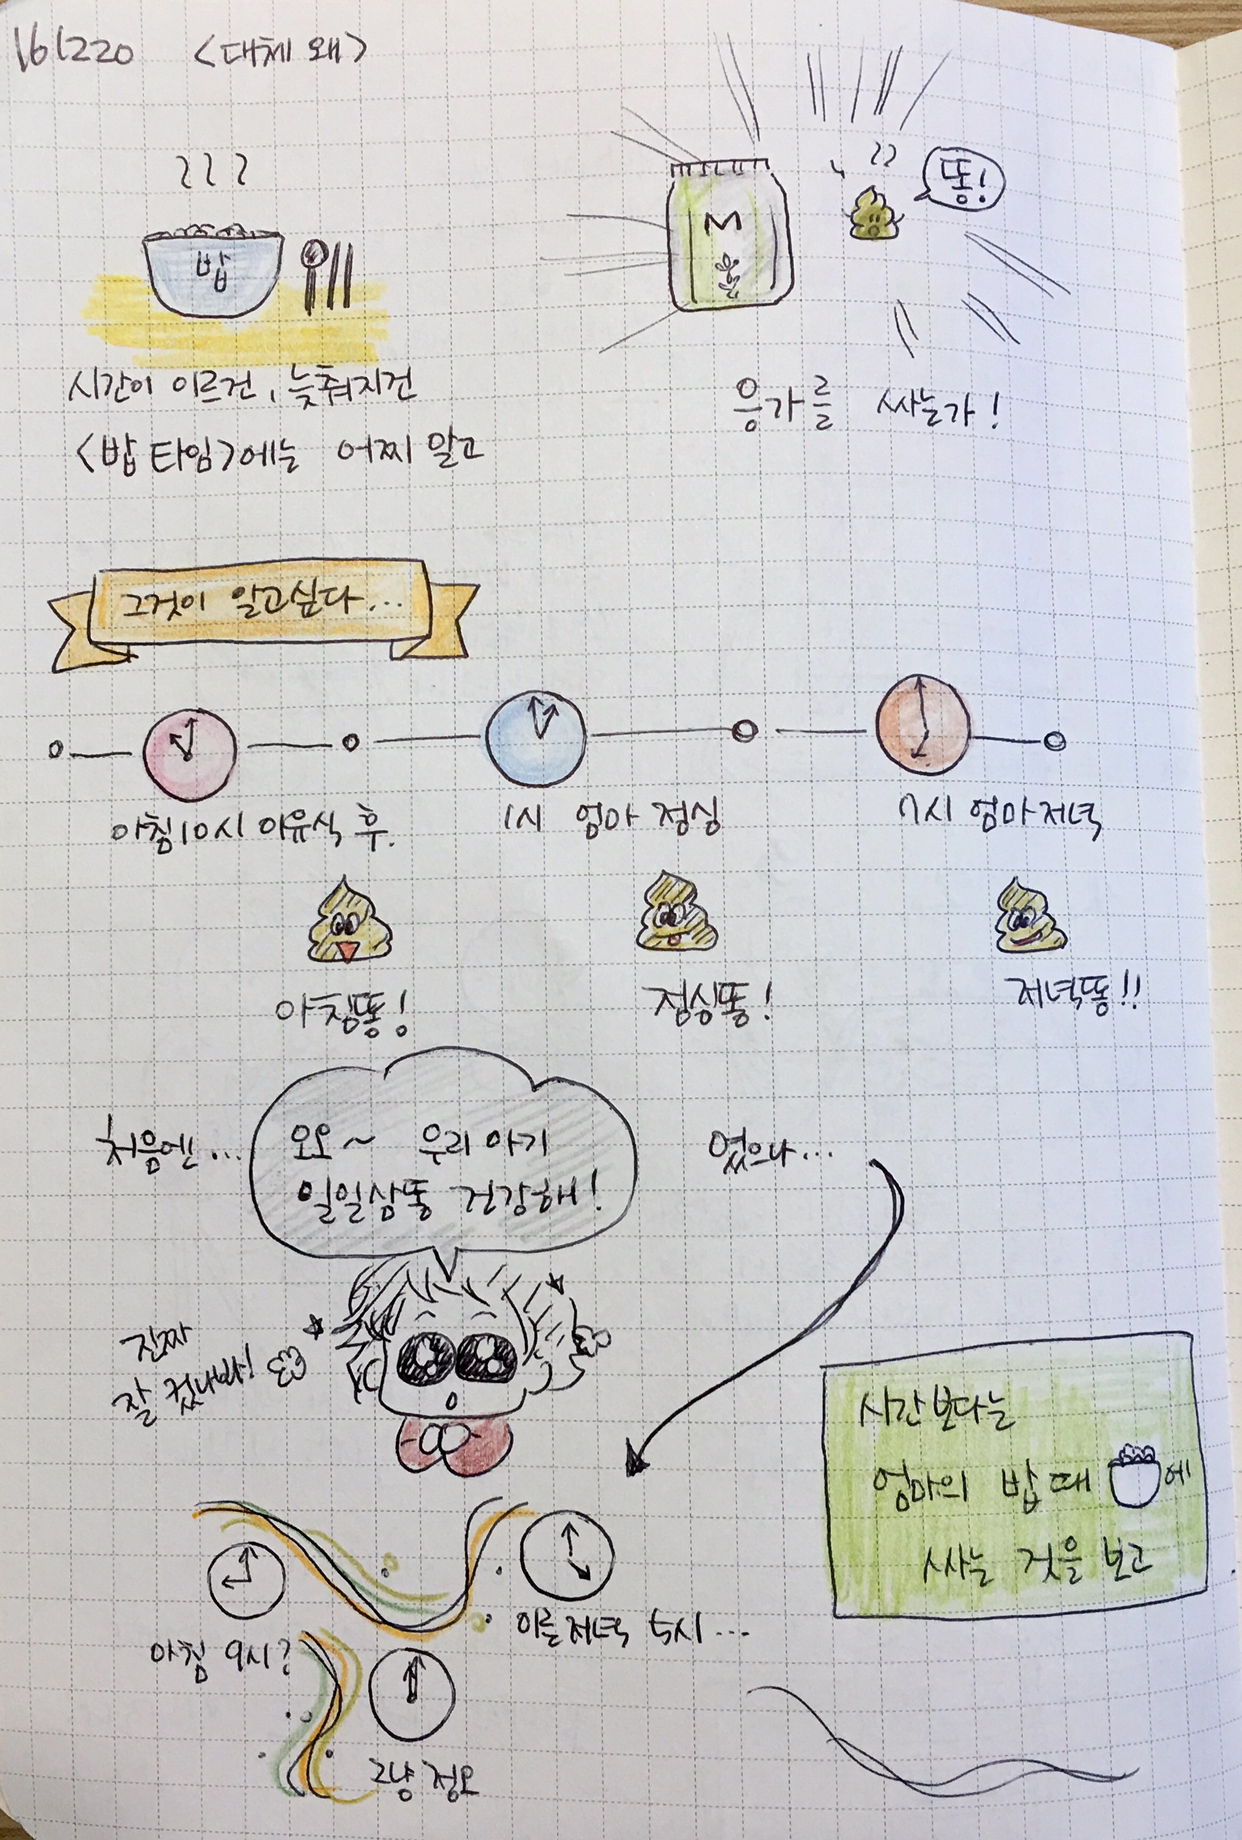 161220 <대체 왜>
밥
M
똥!
시간이 이르건, 늦춰지건
<밥 타임>에는 어찌 알고
응가를 싸는가!
그것이 알고싶다...
아침10시 이유식 후.
1시 엄마 점심
7시 엄마저녁
아침똥!
점심똥!
저녁똥!!
처음엔...
오오~ 우리 아기
일일삼똥 건강해!
였으나...
진짜
잘 컸나봐!
시간보다는
엄마의 밥 때 에
싸는 것을 보고
아침 9시?
이른저녁 5시...
그냥 정오